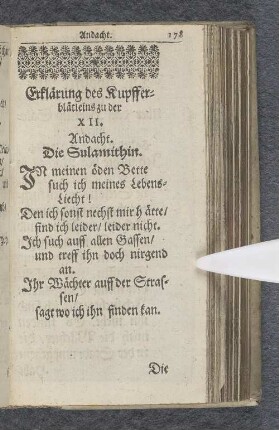 Andacht. 178
Erklärung des Kupffer-
blätleins zu der
XII.
Andacht.
Die Sulamithin.
IN meinen öden Bette
such ich meines Lebens-
Liecht!
Den ich sonst nechst mir hätte/
find ich leider/ leider nicht.
Ich such auff allen Gassen/
und treff ihn doch nirgend
an.
Ihr Wächter auff der Stras-
sen/
sagt wo ich ihn finden kan.
Die